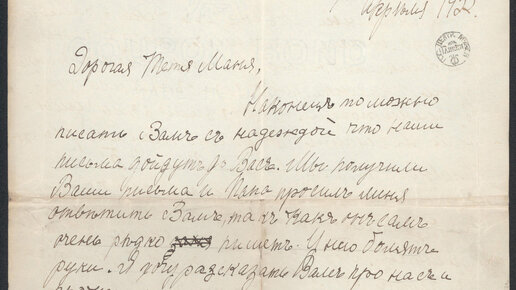 апрѣля 192
Дорогая Тетя Маня,
Наконецъ то можно
писать Вамъ съ надеждой что наши
письма дойдутъ до Васъ. Мы получили
Ваши письма и Папа просилъ меня
отвѣтить Вамъ, такъ какъ онъ самъ
очень рѣдко пишетъ. У него болятъ
руки. Я хочу разсказать Вамъ про насъ и